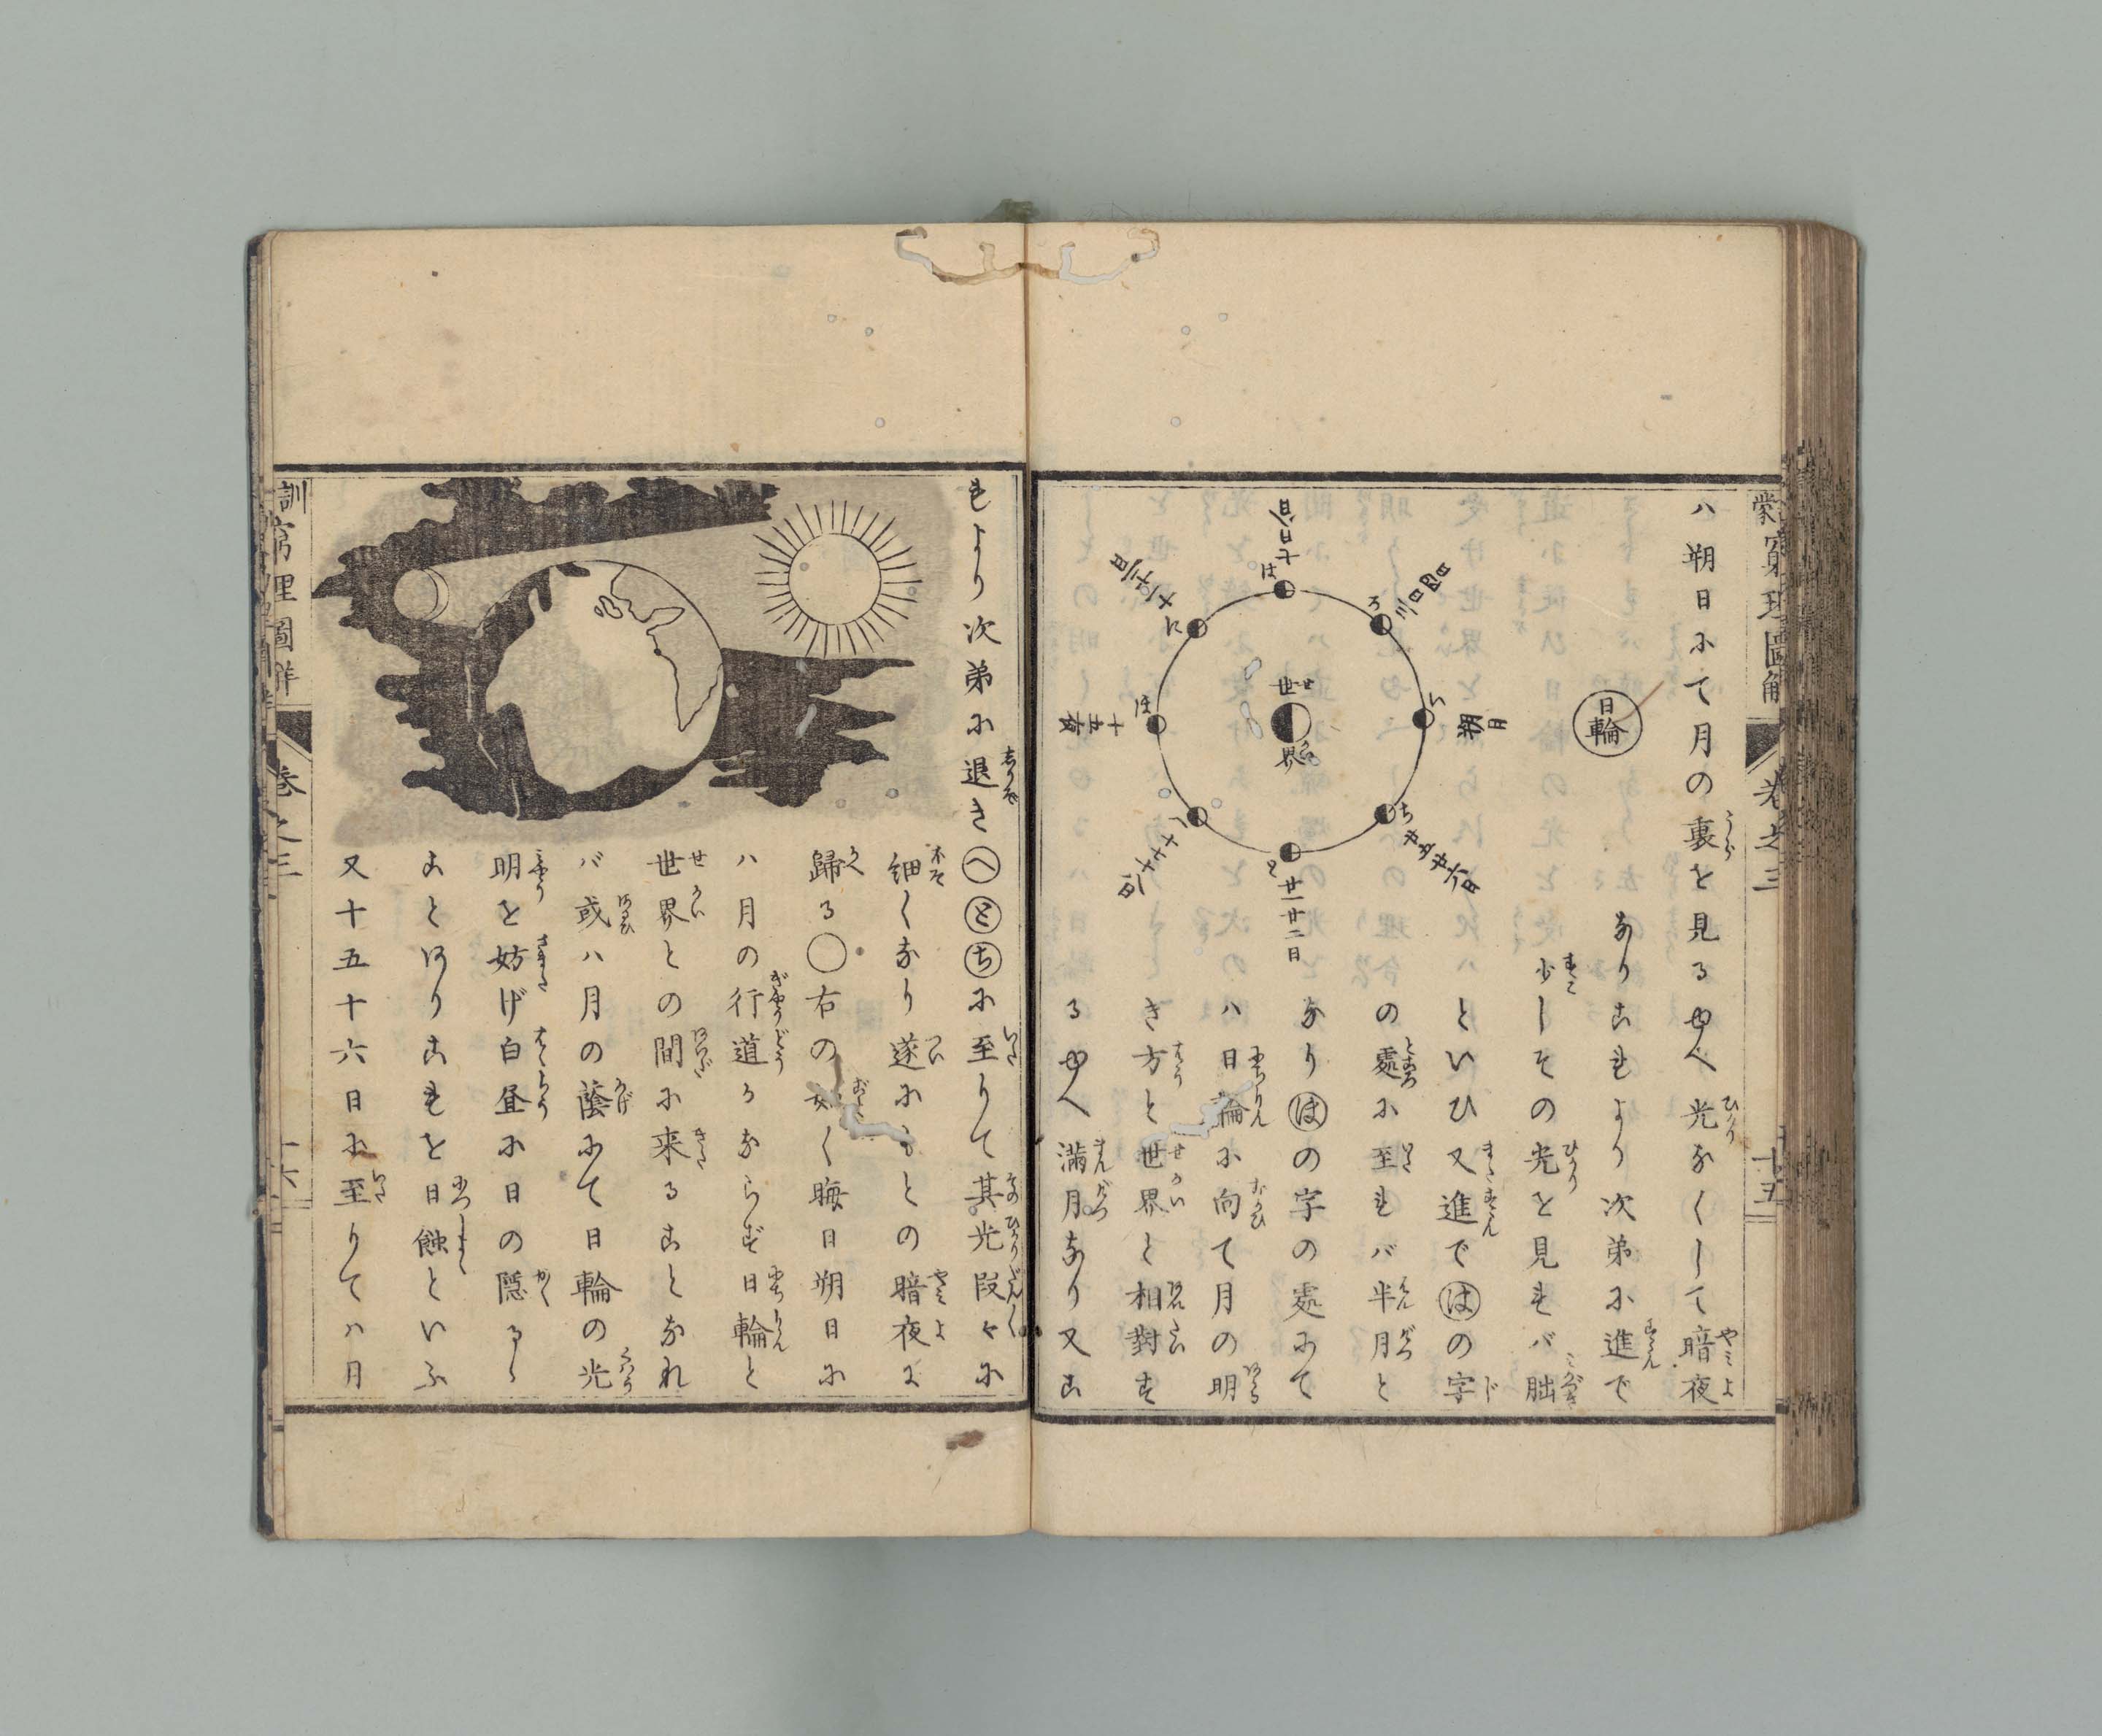 ハ朔日にて月の裏を見るゆへ光なくして暗夜
なりこれより次第に進で
少しその光を見れバ朏
といひ又進でⓗはの字
の處に至れバ半月と
なりはの字の處にて
ハ日輪に向て月の明
き方と世界と相對す
るゆへ満月なり又こ
日輪
朔日
い
三日四日
ろ
七日八日
は
十一二日
に
十五夜
ほ
十七十八日
へ
廿一廿二日
と
廿五廿六日
ち
世界
訓蒙窮理圖解
卷之三
十五
れより次第に退きへとちに至りて其光段々に
細くなり遂にもとの暗夜に
歸る〇右の如く晦日朔日に
ハ月の行道かならず日輪と
世界との間に来ることなれ
バ或ハ月の蔭にて日輪の光
明を妨げ白昼に日の隠るゝ
ことありこれを日蝕といふ
又十五十六日に至りてハ月
訓蒙窮理圖解
卷之三
十六